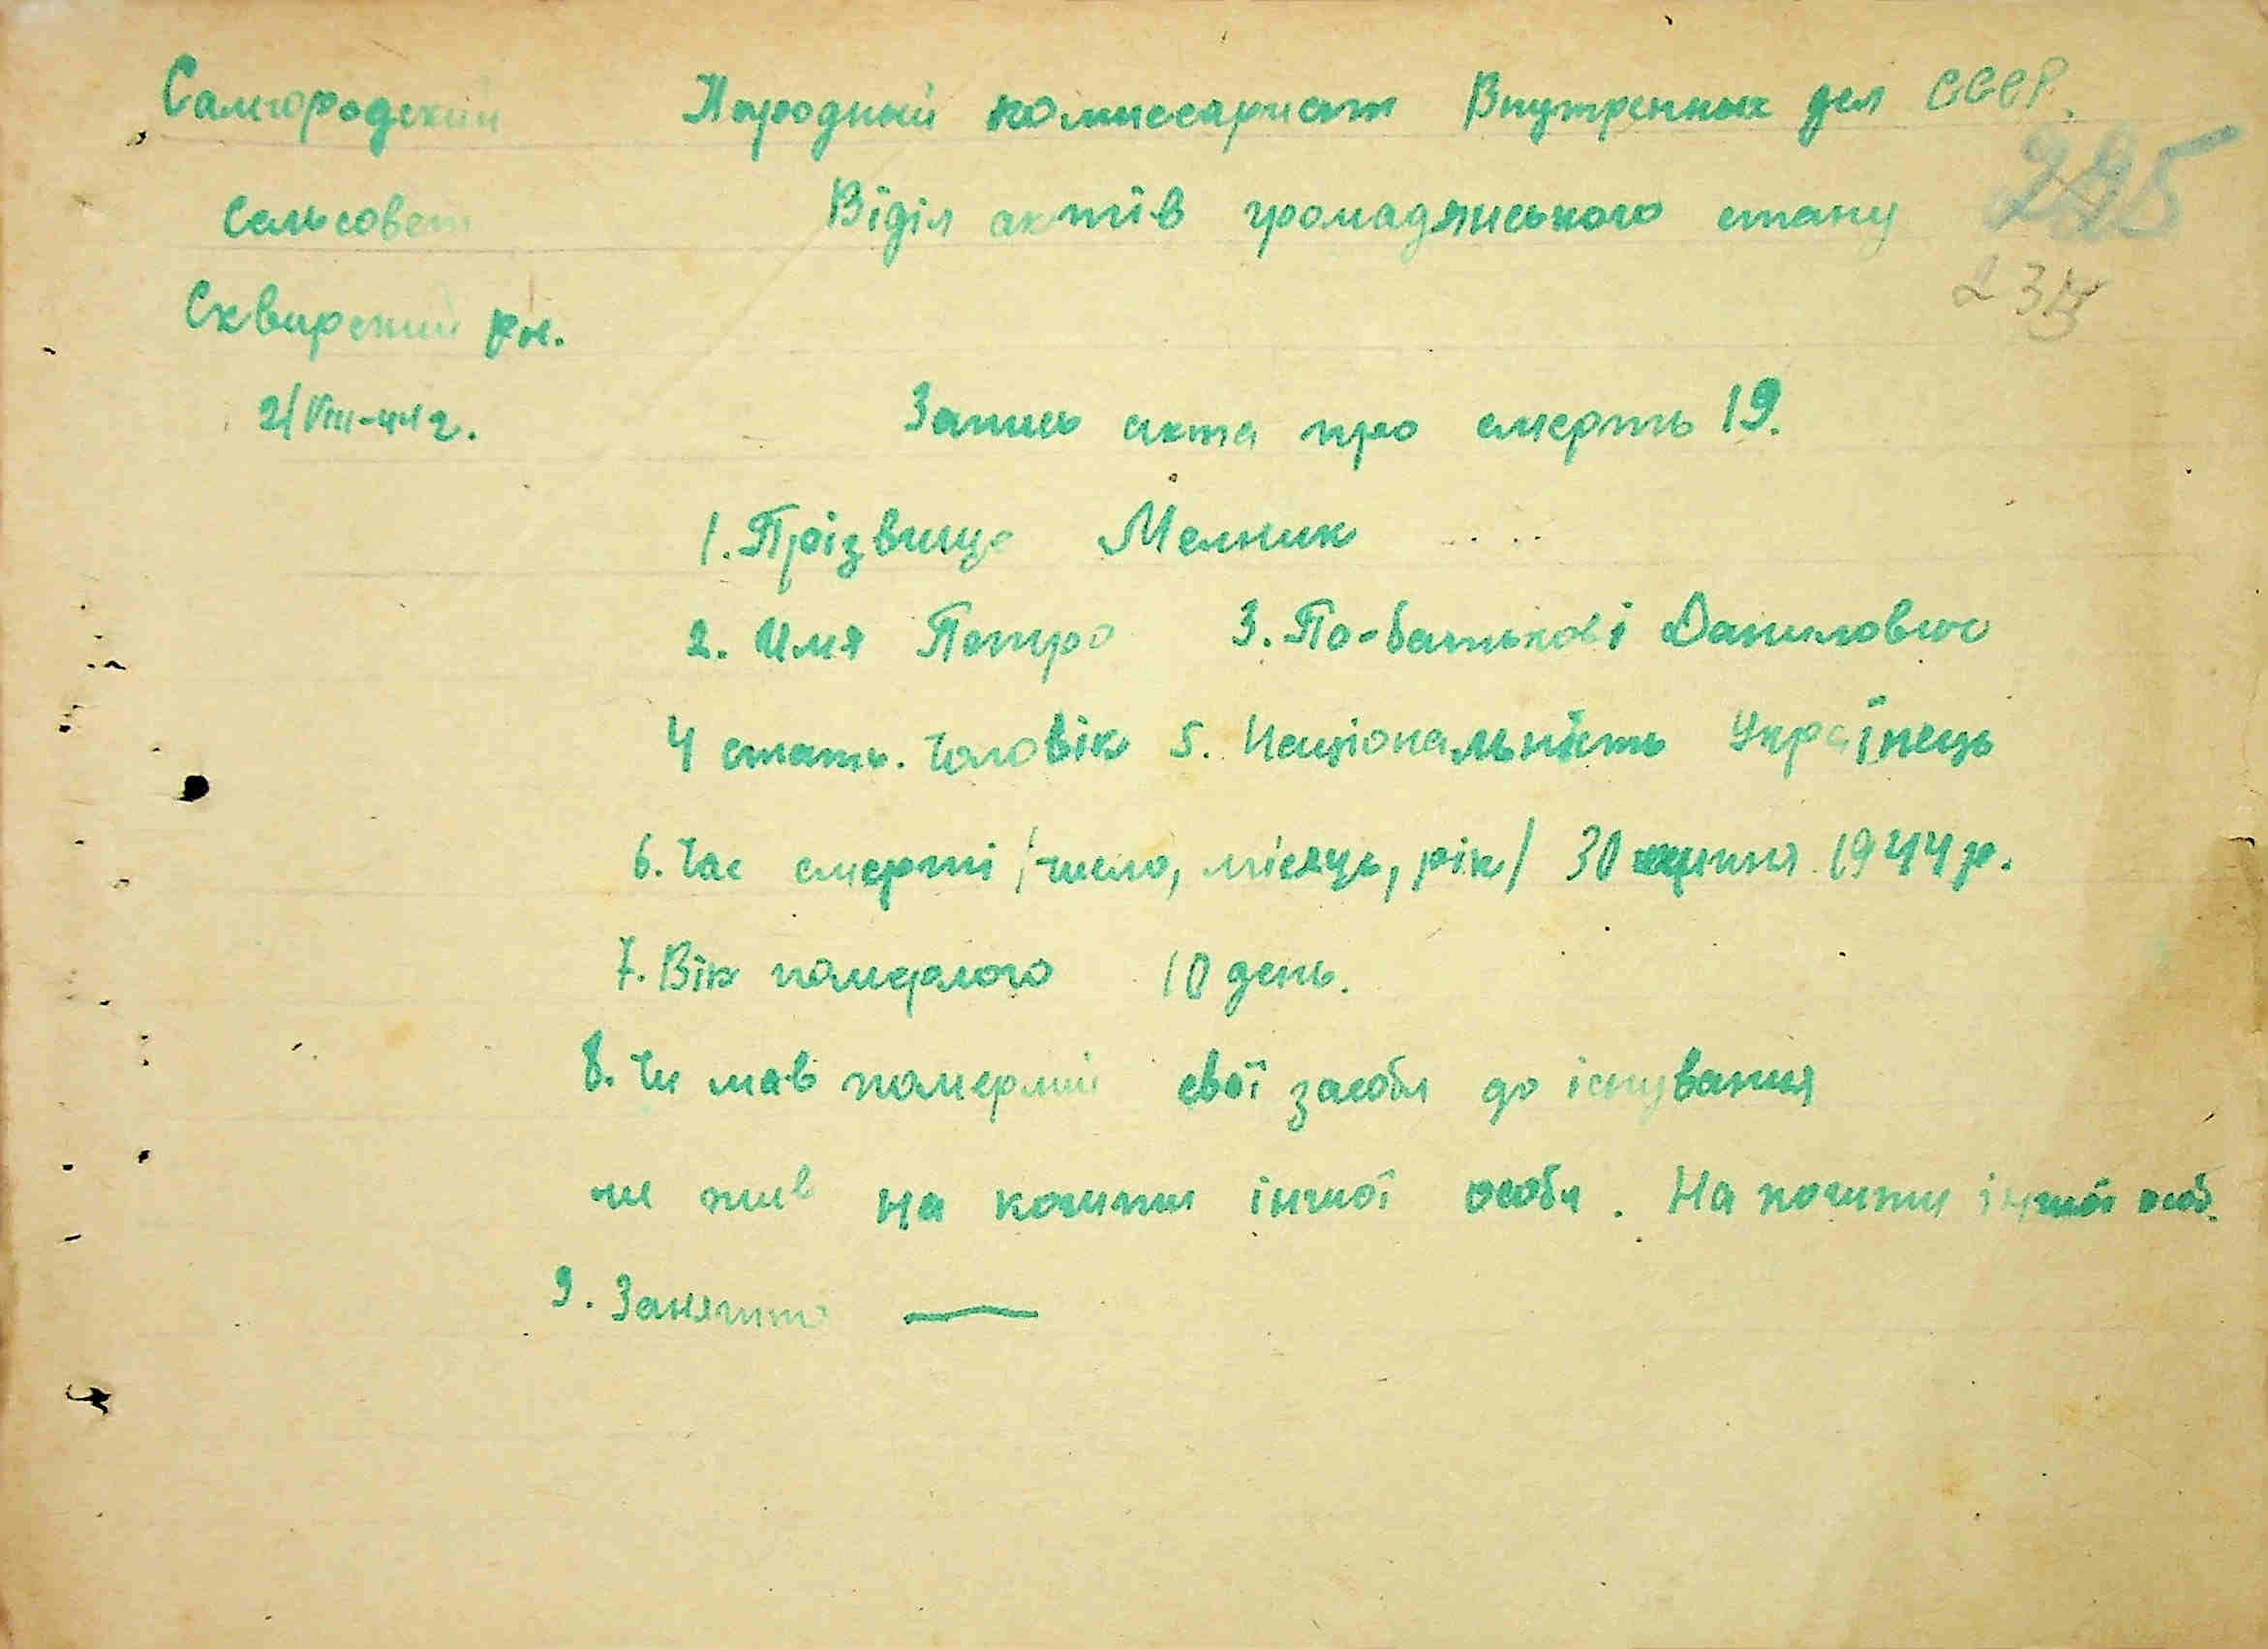 Самгородский Народный комиссариат Внутренных дел СССР.
сельсовет Віділ актів громадянського стану
235
Сквирский рн.
2/VIII-44 г. Запись акта про смерть 19.
1. Прізвище Мелник
2. Имя Петро 3. По-батькові Данилович
4 стать. Чоловік 5. Національність Українець
6. Час смерті /число, місяць, рік/ 30 липня 1944 р.
7. Вік померлого 10 день.
8. Чи мав померлий свої засоби до існування
чи жив на кошти іншої особи. На кошти іншої особ.
9. Заняття —